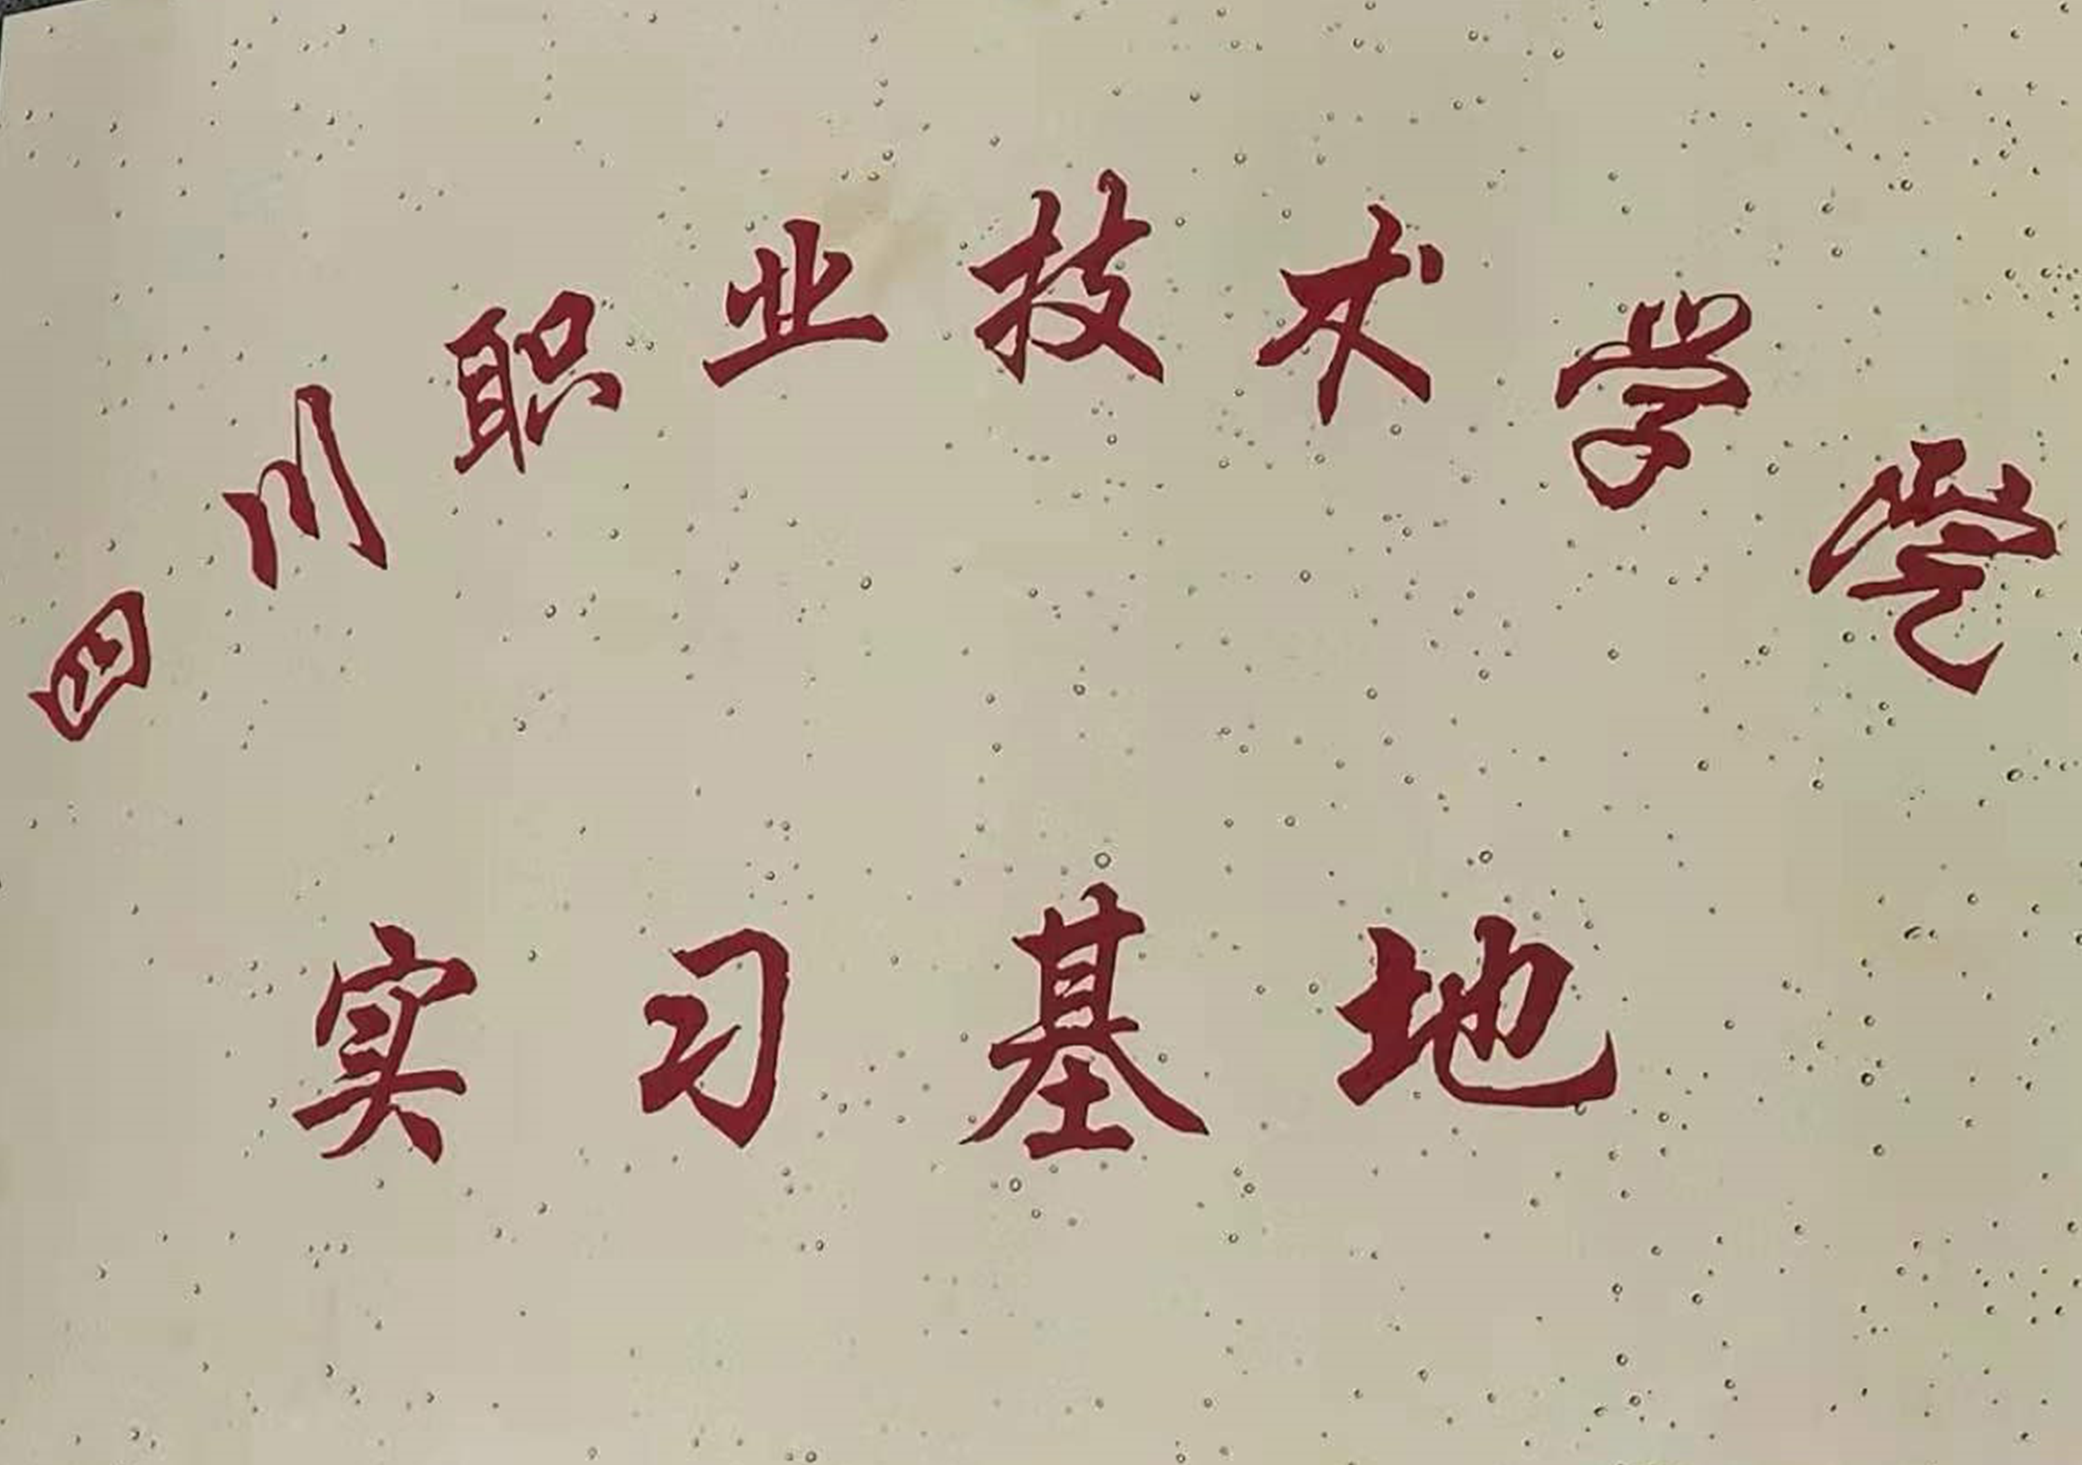 四川职业技术学院
实习基地